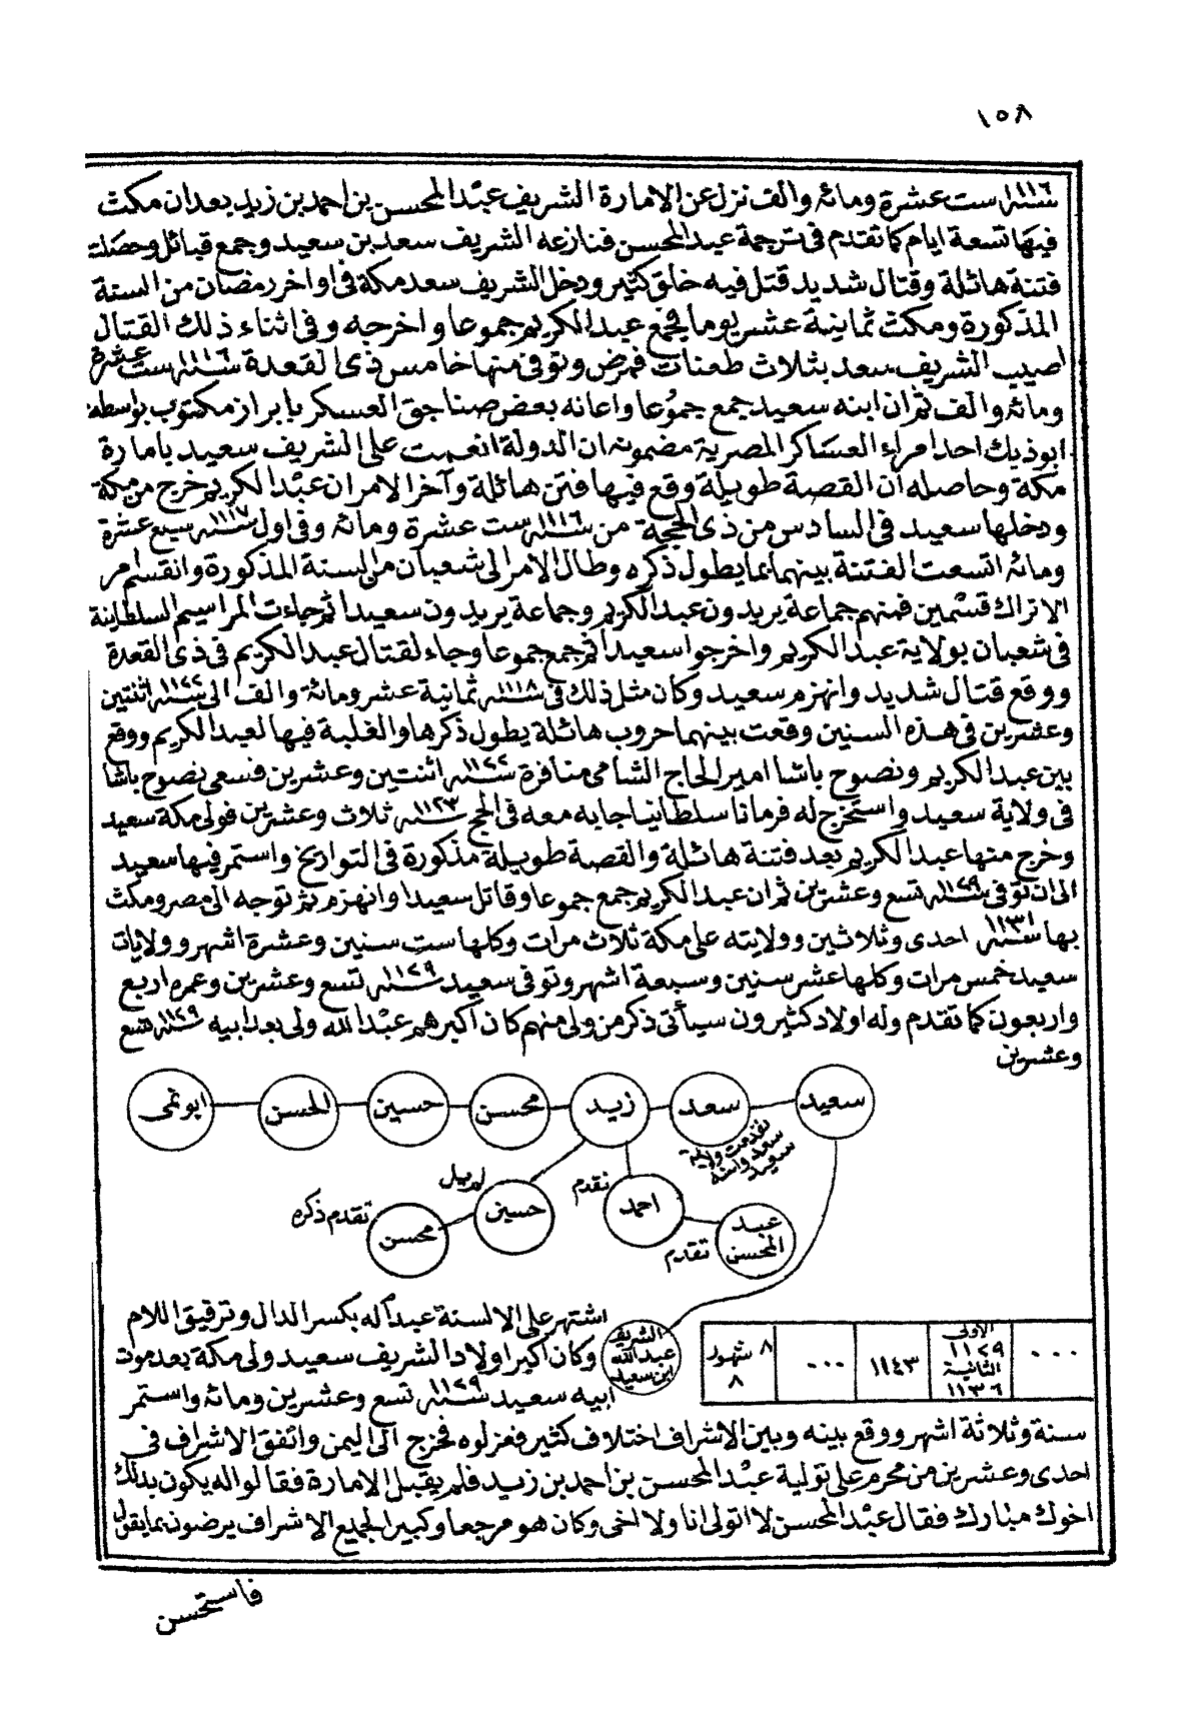 ١٥٨
سنة ١١١٦ ست عشرة ومائة والف نزل عن الامارة الشريف عبد المحسن بن احمد بن زيد بعد ان مكث
فيها تسعة ايام كما تقدم في ترجمة عبد المحسن فنازعه الشريف سعد بن سعيد وجمع قبائل وحصلت
فتنة هائلة وقتال شديد قتل فيه خلق كثير ودخل الشريف سعد مكة في اواخر رمضان من السنة
المذكورة ومكث ثمانية عشر يوما فجمع عبد الكريم جموعا واخرجه وفي اثناء ذلك القتال
اصيب الشريف سعد بثلاث طعنات فمرض وتوفى منها خامس ذي القعدة سنة ١١١٦ ست عشرة
ومائة والف ثم ان ابنه سعيد جمع جموعا واعانه بعض صناجق العسكر بابراز مكتوب بواسطه
ايوذبك احد امراء العساكر المصرية مضمونه ان الدولة انعمت على الشريف سعيد بامارة
مكة وحاصله ان القصة طويلة وقع فيها فتن هائلة وآخر الامر ان عبد الكريم خرج من مكة
ودخلها سعيد في السادس من ذي الحجة من سنة ١١١٦ ست عشرة ومائة وفي اول سنة ١١١٧ سبع عشرة
ومائة اتسعت الفتنة بينهما بما يطول ذكره وطال الامر الى شعبان من السنة المذكورة وانقسم امر
الاتراك قسمين فمنهم جماعة يريدون عبد الكريم وجماعة يريدون سعيدا ثم جاءت المراسيم السلطانية
في شعبان بولاية عبد الكريم واخرجوا سعيدا ثم جمع جموعا وجاء لقتال عبد الكريم في ذي القعدة
ووقع قتال شديد وانهزم سعيد وكان مثل ذلك في سنة ١١١٨ ثمانية عشر ومائة والف الى سنة ١١٢٢ اثنتين
وعشرين في هذه السنين وقعت بينهما حروب هائلة يطول ذكرها والغلبة فيها لعبد الكريم ووقع
بين عبد الكريم ونصوح باشا امير الحاج الشامي منافرة سنة ١١٢٢ اثنتين وعشرين فسعى نصوح باشا
في ولاية سعيد واستخرج له فرمانا سلطانيا جا به معه في الحج سنة ١١٢٣ ثلاث وعشرين فولى مكة سعيد
وخرج منها عبد الكريم بعد فتنة هائلة والقصة طويلة مذكورة في التواريخ واستمر فيها سعيد
الى ان توفى سنة ١١٢٩ تسع وعشرين ثم ان عبد الكريم جمع جموعا وقاتل سعيدا وانهزم ثم توجه الى مصر ومكث
بها سنة ١١٣١ احدى وثلاثين وولايته على مكة ثلاث مرات وكلها ست سنين وعشرة اشهر وولايات
سعيد خمس مرات وكلها عشر سنين وسبعة اشهر وتوفى سعيد سنة ١١٢٩ تسع وعشرين وعمره اربع
واربعون كما تقدم وله اولاد كثيرون سيأتى ذكر من ولى منهم كان اكبرهم عبد الله ولى بعد ابيه سنة ١١٢٩ تسع
وعشرين
سعيد سعد زيد محسن حسين الحسن ابو نمى
تقدمت ولاية
سعد وابنه
سعيد
احمد تقدم
حسين لم يل
محسن تقدم ذكره
عبد المحسن تقدم
الشريف
عبد الله
ابن سعيد
٠٠٠
الاولى
١١٢٩
الثانية
١١٣٦
١١٤٣
٠٠٠
٨ شهور
٨
اشتهر على الالسنة عبد اله بكسر الدال وترقيق اللام
وكان اكبر اولاد الشريف سعيد ولى مكة بعد موت
ابيه سعيد سنة ١١٢٩ تسع وعشرين ومائة واستمر
سنة وثلاثة اشهر ووقع بينه وبين الاشراف اختلاف كثير فعزلوه فخرج الى اليمن واتفق الاشراف في
احدى وعشرين من محرم على تولية عبد المحسن بن احمد بن زيد فلم يقبل الامارة فقالوا له يكون بدلك
اخوك مبارك فقال عبد المحسن لا اتولى انا ولا اخى وكان هو مرجعا وكبير الجميع الاشراف يرضون بما يقول
فاستحسن